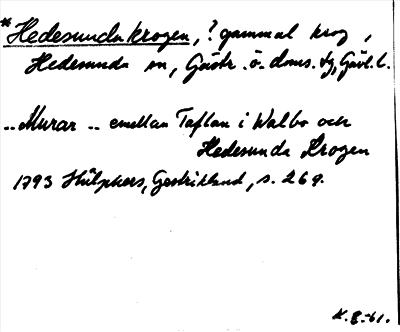 *Hedesundakrogen, ? gammal krog,
Hedesunda sn, Gästr. ö. doms. tg, Gävl. l.
..Murar .. emellan Taflan i Walbo och
Hedesunda Krogen
1793 Hülphers, Gestrikland, s. 269.
K.E.-61.